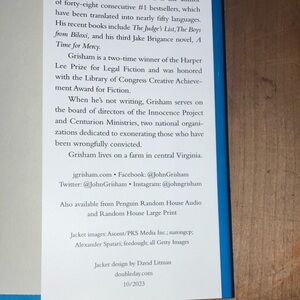 of forty-eight consecutive #1 bestsellers, which
have been translated into nearly fifty languages.
His recent books include The Judge's List, The Boys
from Biloxi, and his third Jake Brigance novel, A
Time for Mercy.
Grisham is a two-time winner of the Harper
Lee Prize for Legal Fiction and was honored
with the Library of Congress Creative Achieve-
ment Award for Fiction.
When he's not writing, Grisham serves on
the board of directors of the Innocence Project
and Centurion Ministries, two national organi-
zations dedicated to exonerating those who have
been wrongfully convicted.
Grisham lives on a farm in central Virginia.
jgrisham.com • Facebook: @JohnGrisham
Twitter: @JohnGrisham • Instagram: @johngrisham
Also available from Penguin Random House Audio
and Random House Large Print
Jacket images: Ascent/PKS Media Inc.;
Alexander Spatari; feedough; all Getty Images
Jacket design by David Litman
doubleday.com
10/2023